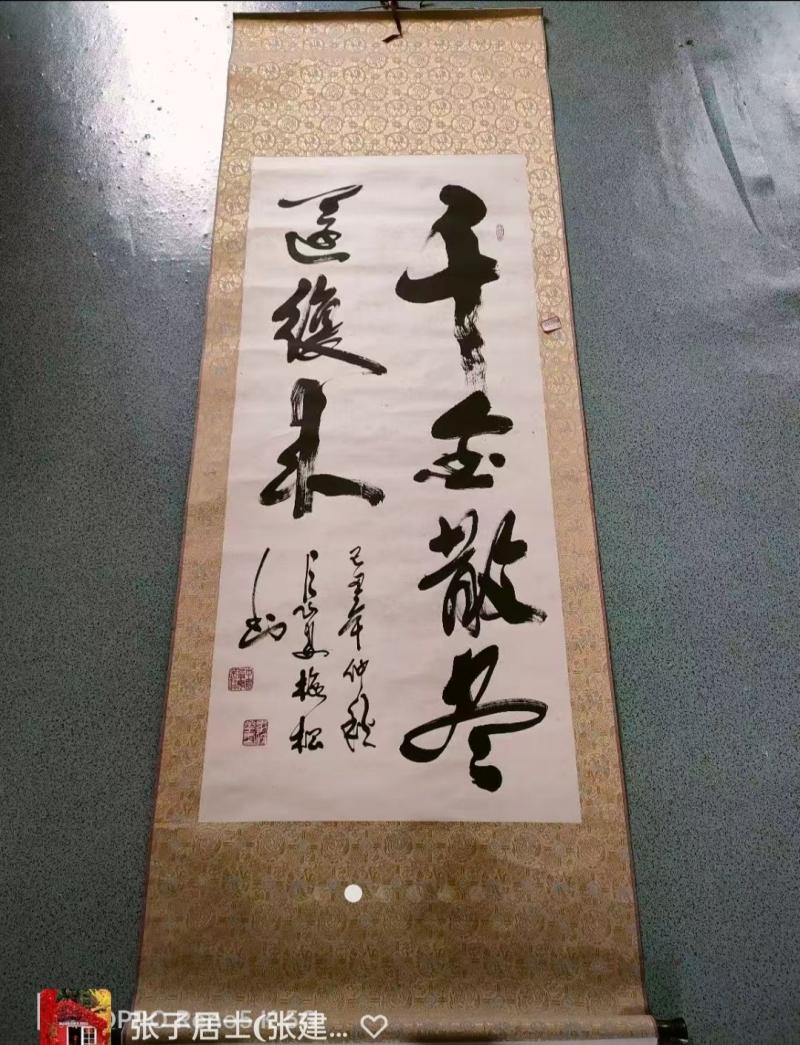 千金散尽
還復来
己丑年仲秋
梅松
书
张子居士(张建...